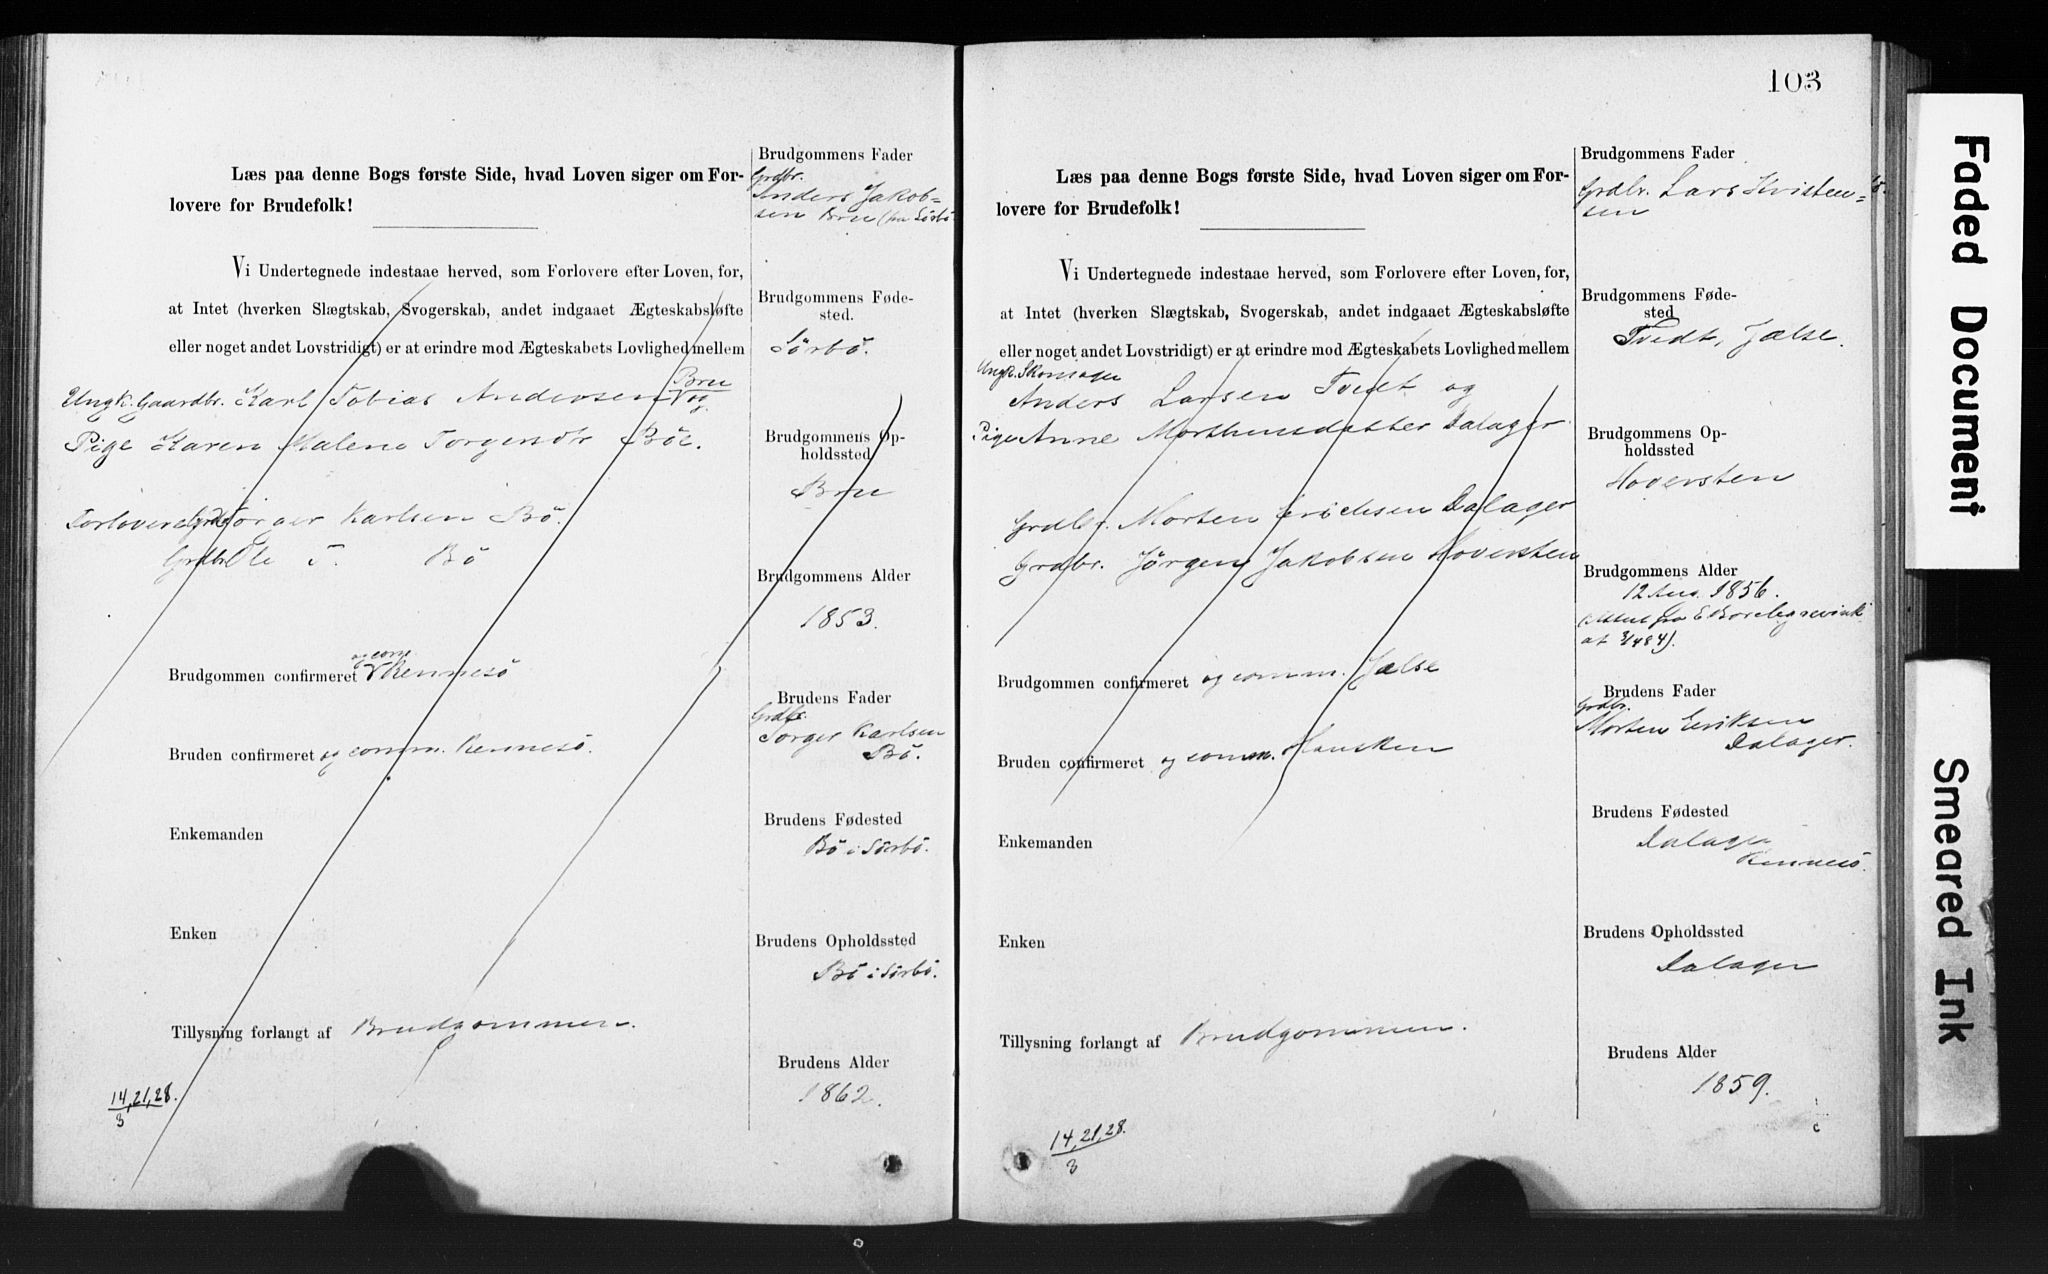 Læs paa denne Bogs første Side, hvad Loven siger om For-
lovere for Brudefolk!
Vi Undertegnede indestaae herved, som Forlovere efter Loven, for,
at Intet (hverken Slægtskab, Svogerskab, andet indgaaet Ægteskabsløfte
eller noget andet Lovstridigt) er at erindre mod Ægteskabets Lovlighed mellem
Ungk. Gaardbr. Karl Tobias Andersen Bru
og
Pige Karen Malene Torgersdr Böe.
Forlovere Grdbr Torger Karlsen Bö.
Grdbr Ole T. Bö
Brudgommen confirmeret og comm. Rennesö
Bruden confirmeret og comm. Rennesö.
Enkemanden
Enken
Tillysning forlangt af Brudgommen.
14, 21, 28.
3
Brudgommens Fader
Grdbr.
Anders Jakob=
sen Bru (fra Sörbö
BrudgommensFøde-
sted.
Sörbö.
Brudgommens Op-
holdssted
Bru
Brudgommens Alder
1853.
Brudens Fader
Grdbr.
Torger Karlsen
Bö.
Brudens Fødested
Bö i Sörbö.
Brudens Opholdssted
Bö i Sörbö.
Brudens Alder
1862.
103
Læs paa denne Bogs første Side, hvad Loven siger om For-
lovere for Brudefolk!
Vi Undertegnede indestaae herved, som Forlovere efter Loven, for,
at Intet (hverken Slægtskab, Svogerskab, andet indgaaet Ægteskabsløfte
eller noget andet Lovstridigt) er at erindre mod Ægteskabets Lovlighed mellem
Ungk. Skomager
Anders Larsen Tvedt og
Pige Anne Morthensdatter Dalager
Grdbr. Morten Erichsen Dalager
Grdbr. Jørgen Jakobsen Hoversten
Brudgommen confirmeret og comm. Jælse
Bruden confirmeret og comm. Hausken
Enkemanden
Enken
Tillysning forlangt af Brudgommen.
14, 21, 28.
3
Brudgommens Fader
Grdbr. Lars Kristen=
sen
Brudgommens Føde-
sted
Tvedt, Jælse.
Brudgommens Op-
holdssted
Hoversten
Brudgommens Alder
12 Aug. 1856.
Brudens Fader
Grdbr.
Morten Eriksen
Dalager.
Brudens Fødested
Dalager
Rennesö.
Brudens Opholdssted
Dalager
Brudens Alder
1859.
Faded Document
Smeared Ink